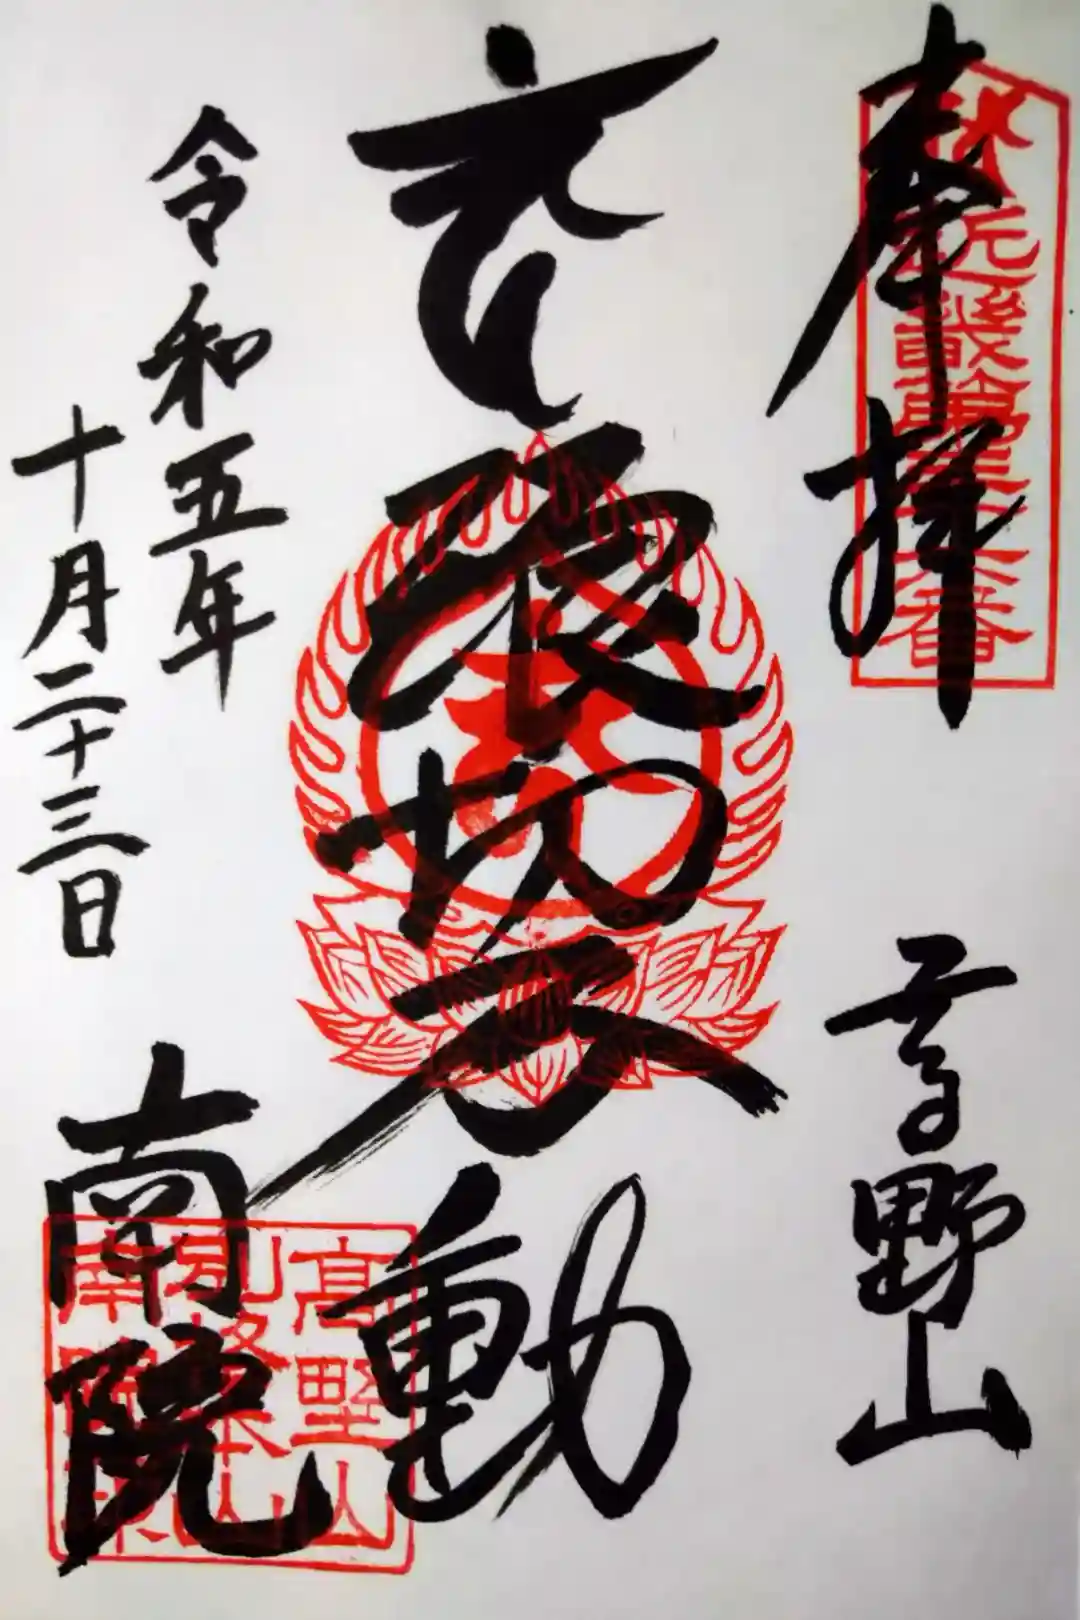 奉拝
高野山
近畿
番
浪切不動
令和五年
十月二十三日
南院
高野山
別格本山
南院